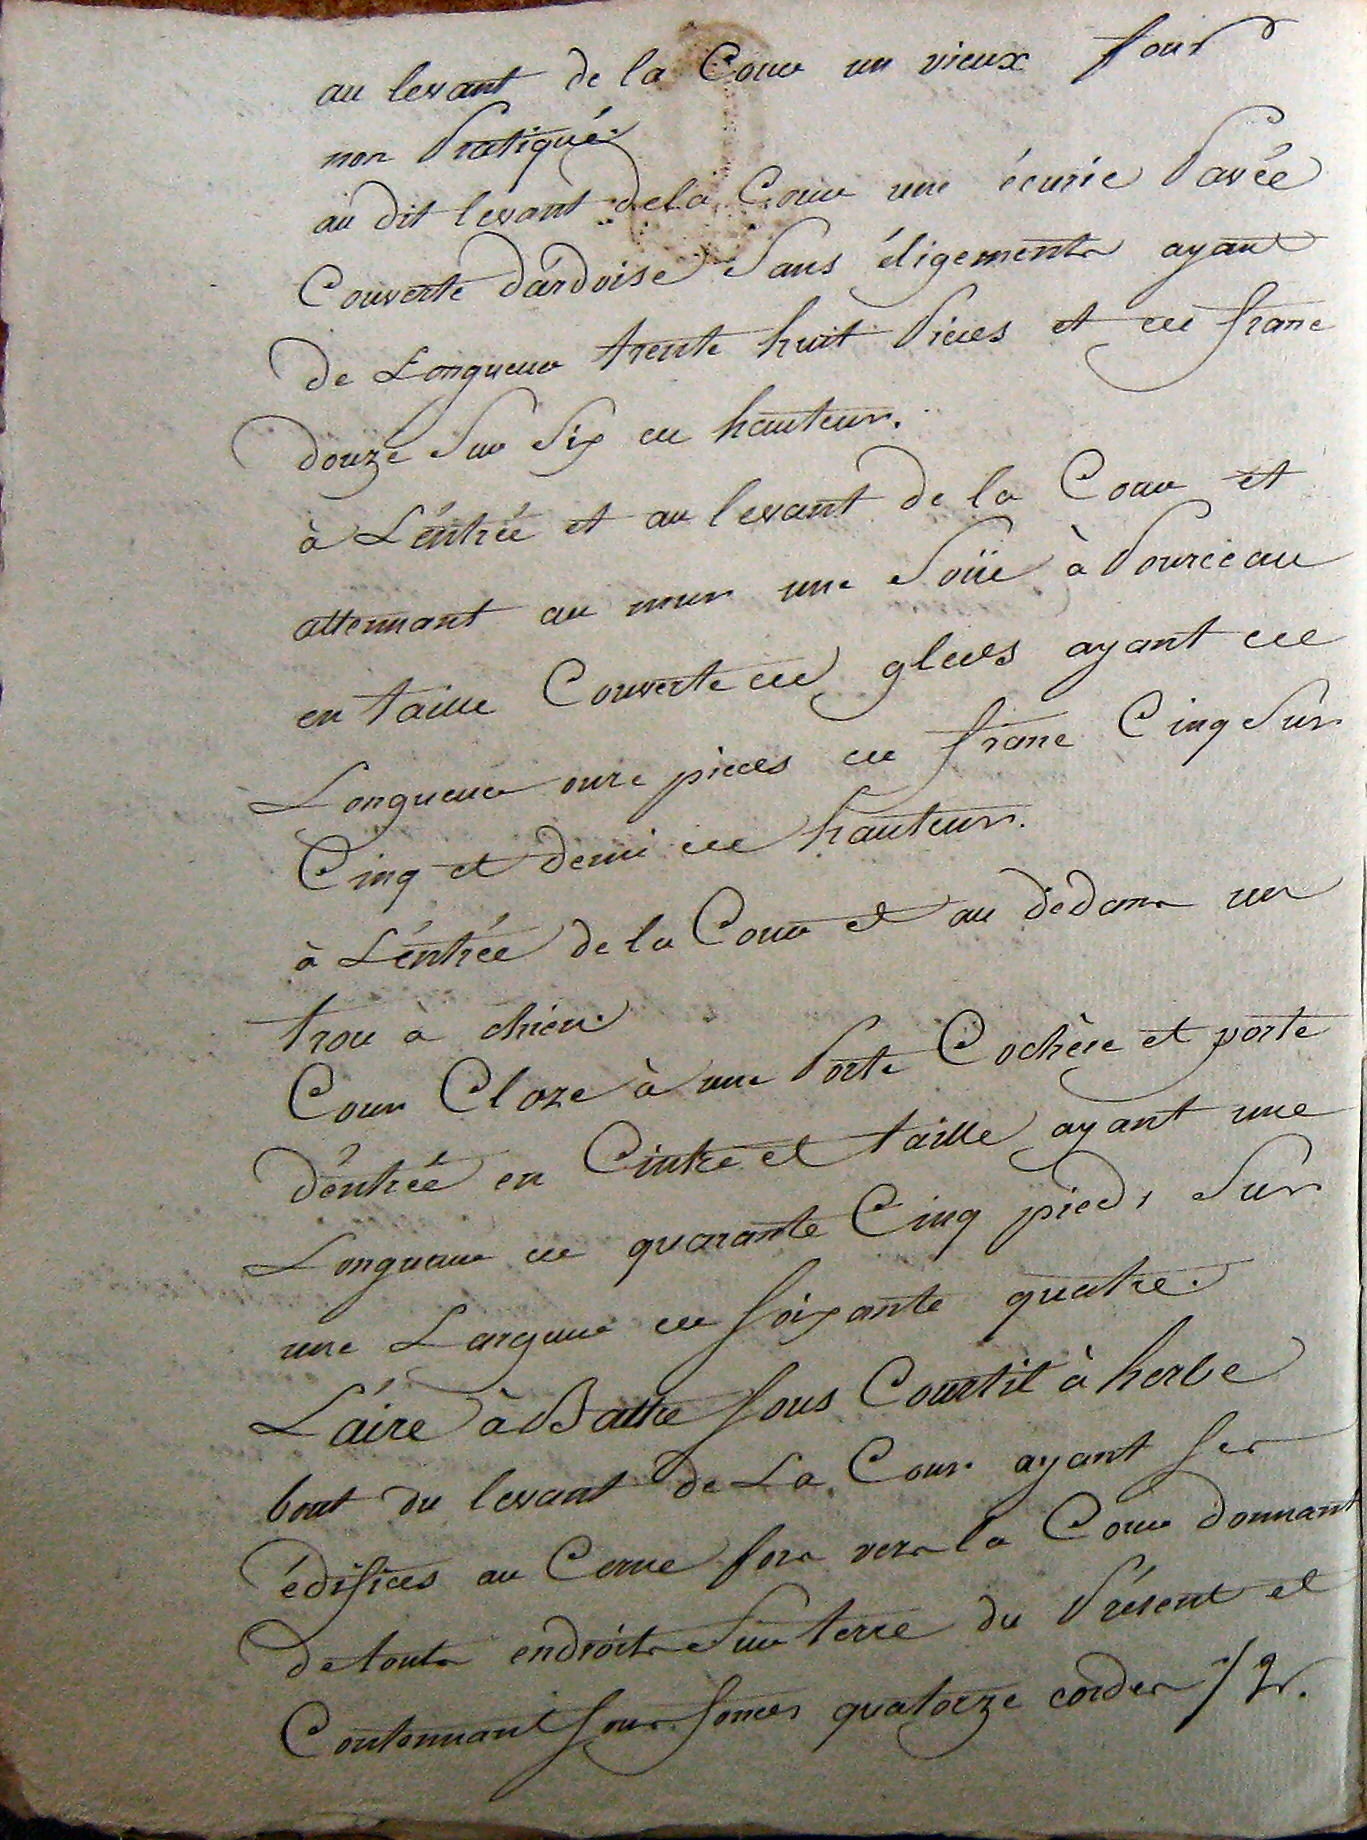 au levant de la Cour un vieux four
non Pratiqué.
au dit levant dela Cour une écurie Pavée
Couverte d'ardoise Sans éligements ayant
de Longueur trente huit Pieces et en franc
douze Sur Six en hauteur.
à L'éntrée et au levant de la Cour et
attennant au mur une Soüe à Pourceau
en taille Couverte en glees ayant en
Longueur onze pieces en franc Cinq Sur
Cinq et demi en hauteur.
à L'éntrée de la Cour et au dedans un
trou a chien.
Cour Cloze à une Porte Cochère et porte
d'éntrée en Cintre et taille ayant une
Longueur en quarante Cinq pieds Sur
une Largeur en soixante quatre.
L'áire à Battre sous Courtil à herbe
bout du levant de La Cour ayant ses
édifices au Cerne fors vers la Cour donnant
de touts endroits Sur terre du Présent et
Contennant sous fonces quatorze cordes 1/2.